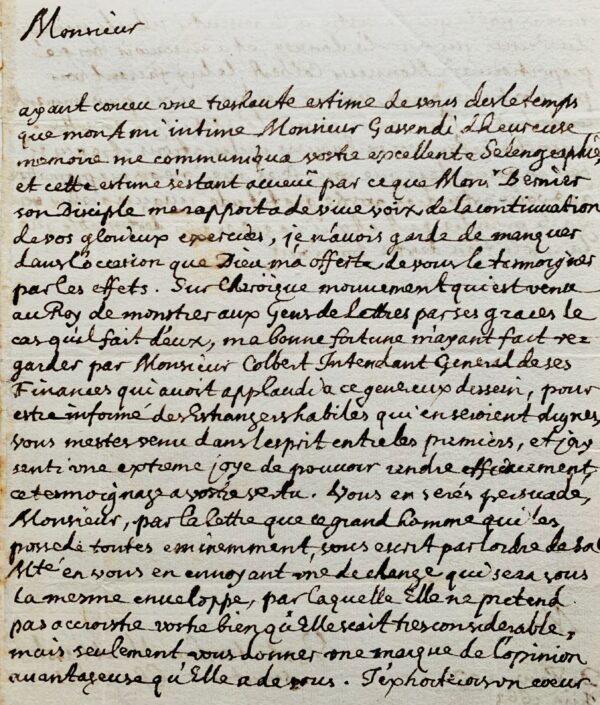 Monsieur
ayant conceu vne treshaute estime de vous desletemps
que mon Ami intime Monsieur Gassendi d'heureuse
memoire me communiqua vostre excellente Selenographie,
et cette estime s'estant accreüe par ceque Monsr Bernier
son Disciple me rapporta de vive voix, de la continuation
de vos glorieux exercices, je n'avois garde de manquer
dans l'occasion que Dieu m'a offerte de vous le temmoigner
par les effets. Sur l'heroique mouvement qui est venu
au Roy de monstrer aux Gens de Lettres par ses graces le
cas qu'il fait d'eux, ma bonne fortune m'ayant fait re=
garder par Monsieur Colbert Intendant General de ses
Finances qui avoit applaudi a ce genereux dessein, pour
estre informé des Estrangers habiles qui en seroient dignes,
vous m'estes venu dans l'esprit entre les premiers, et j'ay
senti vne extreme joye de pouvoir rendre efficacement
ce temoignage a vostre vertu. Vous en serés persuadé,
Monsieur, par la lettre que ce grand homme qui les
possede toutes eminemment, vous escrit par l'ordre de Sa
Mté en vous en envoyant vne de change qui sera sous
la mesme enveloppe, par laquelle Elle ne pretend
pas accroistre vostre bien qu'Elle sçait tres considerable,
mais seulement vous donner vne marque de l'opinion
avantageuse qu'Elle a de vous. J'exhortois son coeur